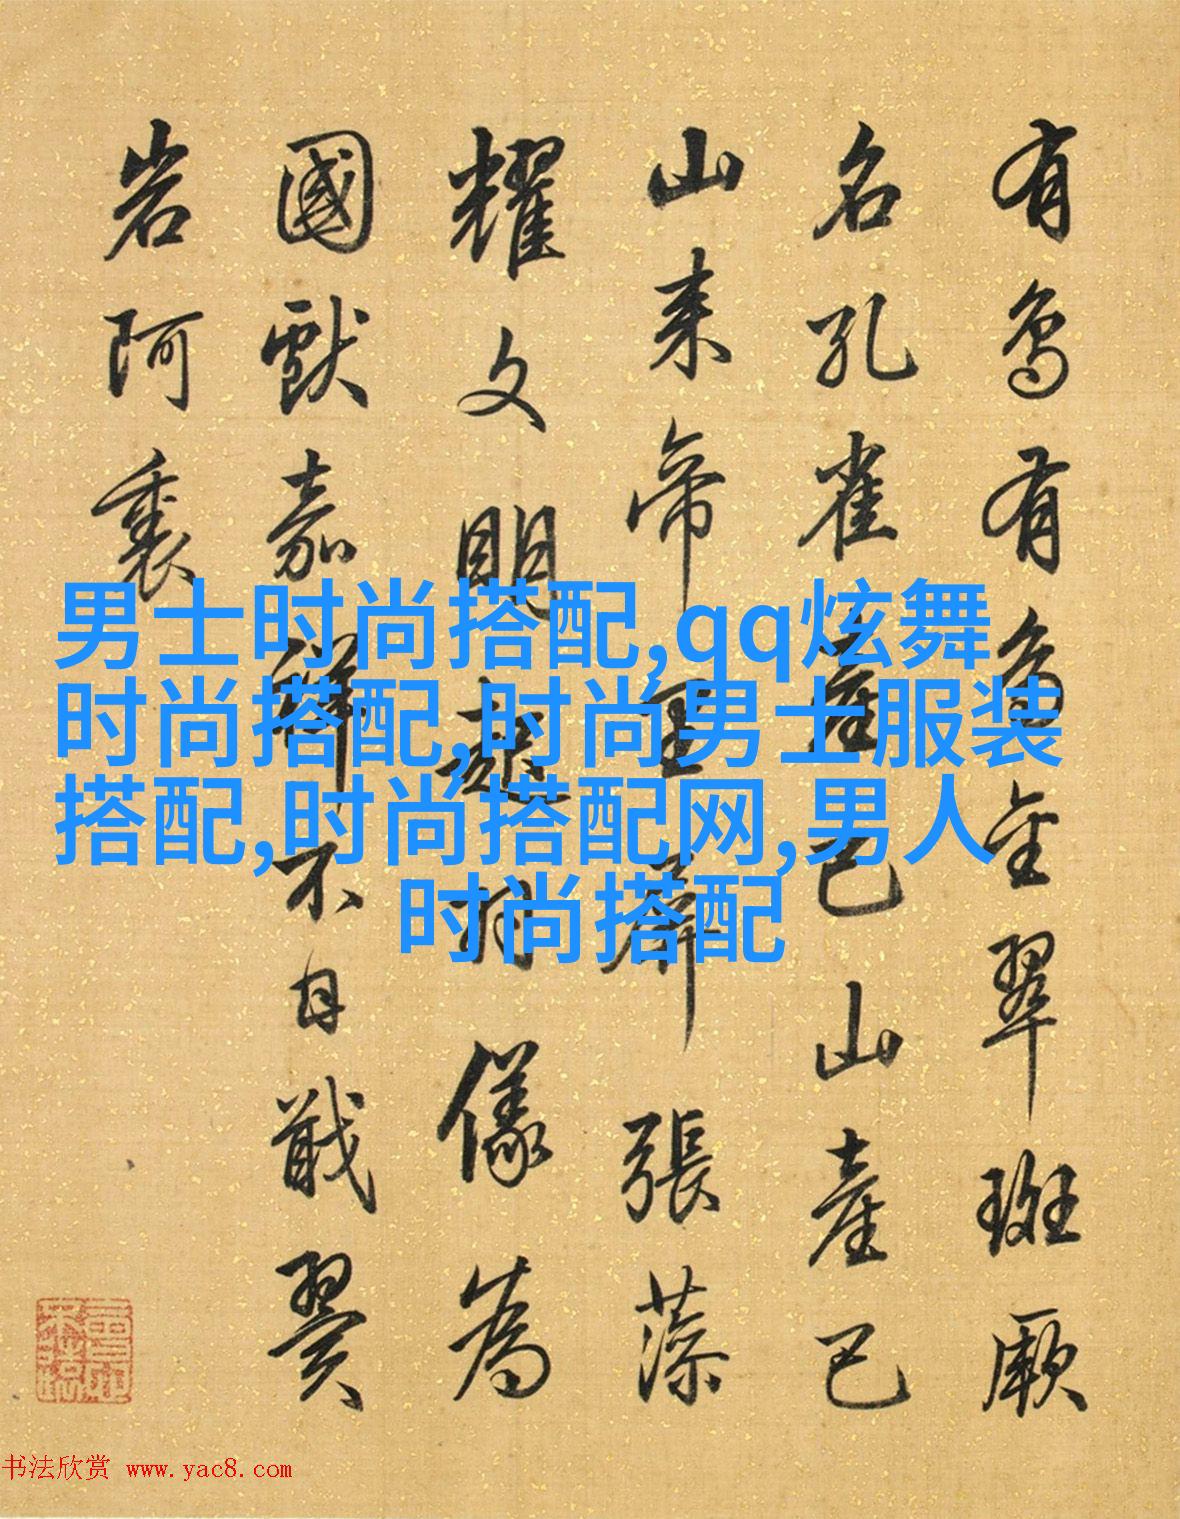 有鸟有鸟金翠斑厥
名孔雀產巴山產巴
山来帝王屏張藻
耀文明越羽儀為
國獸嘉祥不自戢翼
岩阿裏
男士时尚搭配,qq炫舞
时尚搭配,时尚男士服装
搭配,时尚搭配网,男人
时尚搭配
书法欣赏 www.yac8.com